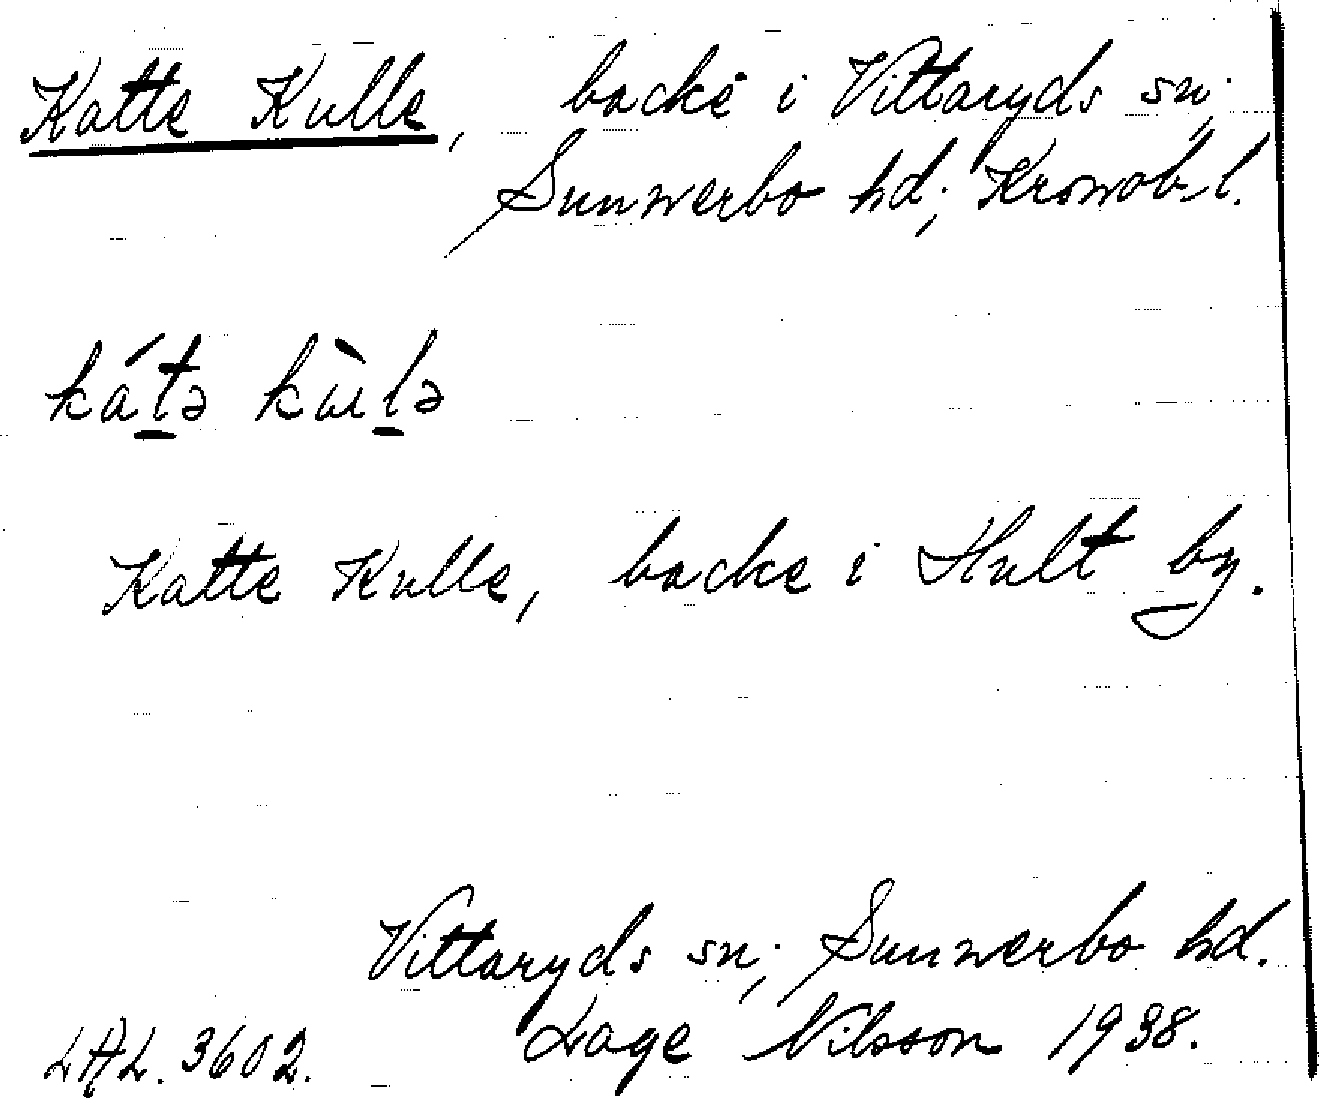 Katte Kulle, backe i Vittaryds sn;
Sunnerbo hd; Kronob. l.
ká̱tə kùlə
Katte Kulle, backe i Hult by.
Vittaryds sn; Sunnerbo hd.
LAL. 3602. Lage Nilsson 1938.